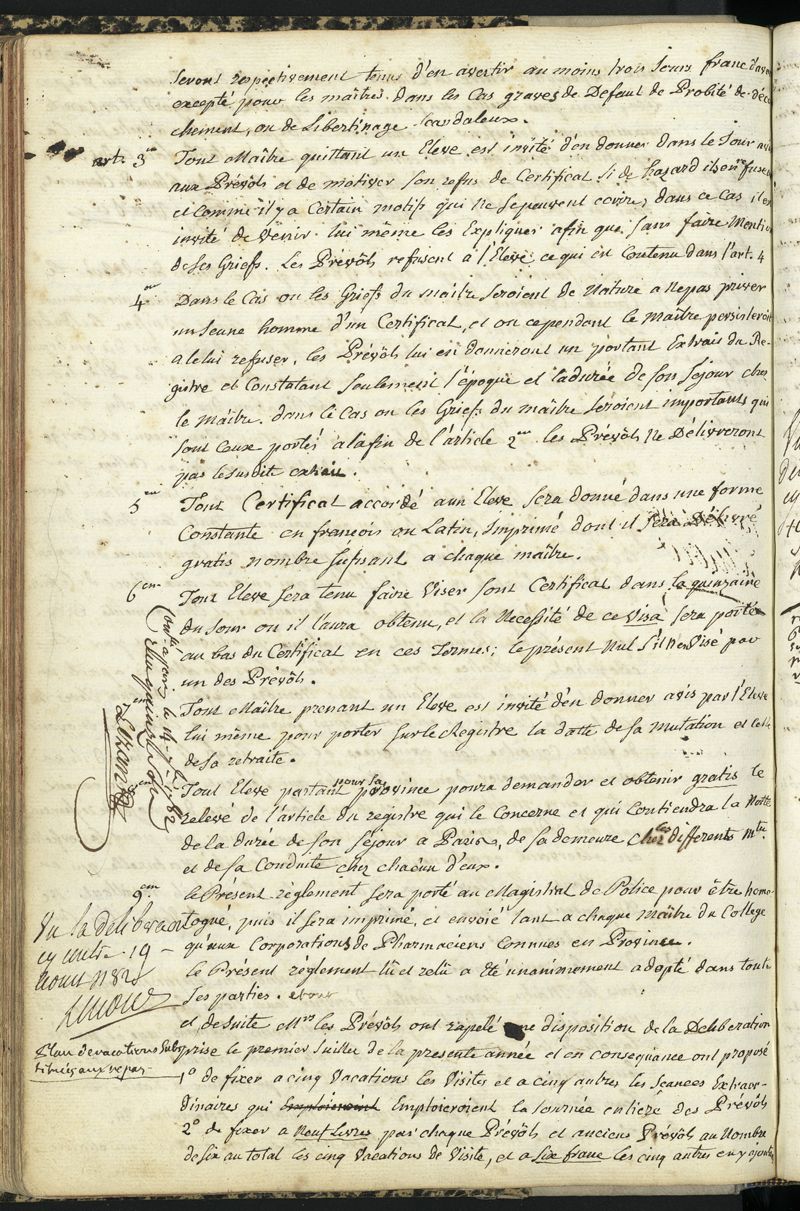 seront respectivement tenus d'en avertir au moins trois Jours franc d'avan
excepté pour les maîtres dans les Cas graves de Defaut de Probité de
chement, ou de Libertinage Scandaleux.
art. 3eme Tout Maître quittant un Eleve est invité d'en donner dans le Jour avis
aux Prévôts et de motiver son refus de Certificat si de hasard ils en
et Comme il y a Certain motifs qui ne se peuvent ecrire, dans ce Cas il est
invité de Venir lui même les Expliquer afin que sans faire Mention
de ses Griefs. Les Prévôts refusent à l'Eleve ce qui est Contenu dans l'art. 4
4eme Dans le Cas ou les Griefs du maître seroient de Nature a ne pas priver
un Jeune homme d'un Certificat, et ou cependant le Maître persisteroit
a le lui refuser, les Prévôts lui en donneront un portant Extrait du Re-
gistre et Constatant seulement l'époque et la durée de son sejour chez
le Maître. dans le Cas ou les Griefs du maître seroient importants qui
sont Ceux portés a la fin de l'article 2eme les Prévôts ne Délivreront
pas le susdit extrait.
5eme Tout Certificat accordé a un Eleve sera donné dans une forme
Constante en françois ou Latin, Imprimé dont il sera Délivré
gratis nombre sufisant a chaque maître.
6eme Tout Eleve sera tenu faire Viser sont Certificat dans la quinzaine
du Jour ou il l'aura obtenu, et la Necessité de ce Visa sera portée
au bas du Certificat en ces Termes; le présent Nul s'il n'est Visé par
un des Prévôts.
Tout Maître prenant un Eleve est invité d'en donner avis par l'Eleve
lui même pour porter sur le Registre la datte de sa Mutation et celle
de sa retraite.
Tout Eleve partant pour sa province poura demander et obtenir gratis le
relevé de l'article du registre qui le Concerne et qui Contiendra la Notte
de la durée de son séjour a Paris, de sa demeure chez les differents Mtres
et de sa Conduite chez chacun d'eux.
9eme
le Présent règlement sera porté au Magistrat de Police pour être homo-
logué, puis il sera imprimé, et envoié tant a chaque maître du College
qu'aux Corporations de Pharmaciens Connues en Province.
le Présent règlement lû et relû a été unanimement adopté dans toute
ses parties.
et de suite Mrs les Prévôts ont rapelé une disposition de la Deliberation
prise le premier Juillet de la presente année et en consequance ont proposé
1° de fixer a cinq Vacations les Visites et a cinq autres les seances Extraor-
dinaires qui Emploieroient la Journée entiere des Prévôts
2° de fixer a Neuf Livres par chaque Prévôts et anciens Prévôts au Nombre
de six au total les cinq Vacations de Visite, et a six franc les cinq autres en y ajouta
Vu la deliberation
cy contre 19
aout 1782
Plan de vacations Subs
tituées aux repas